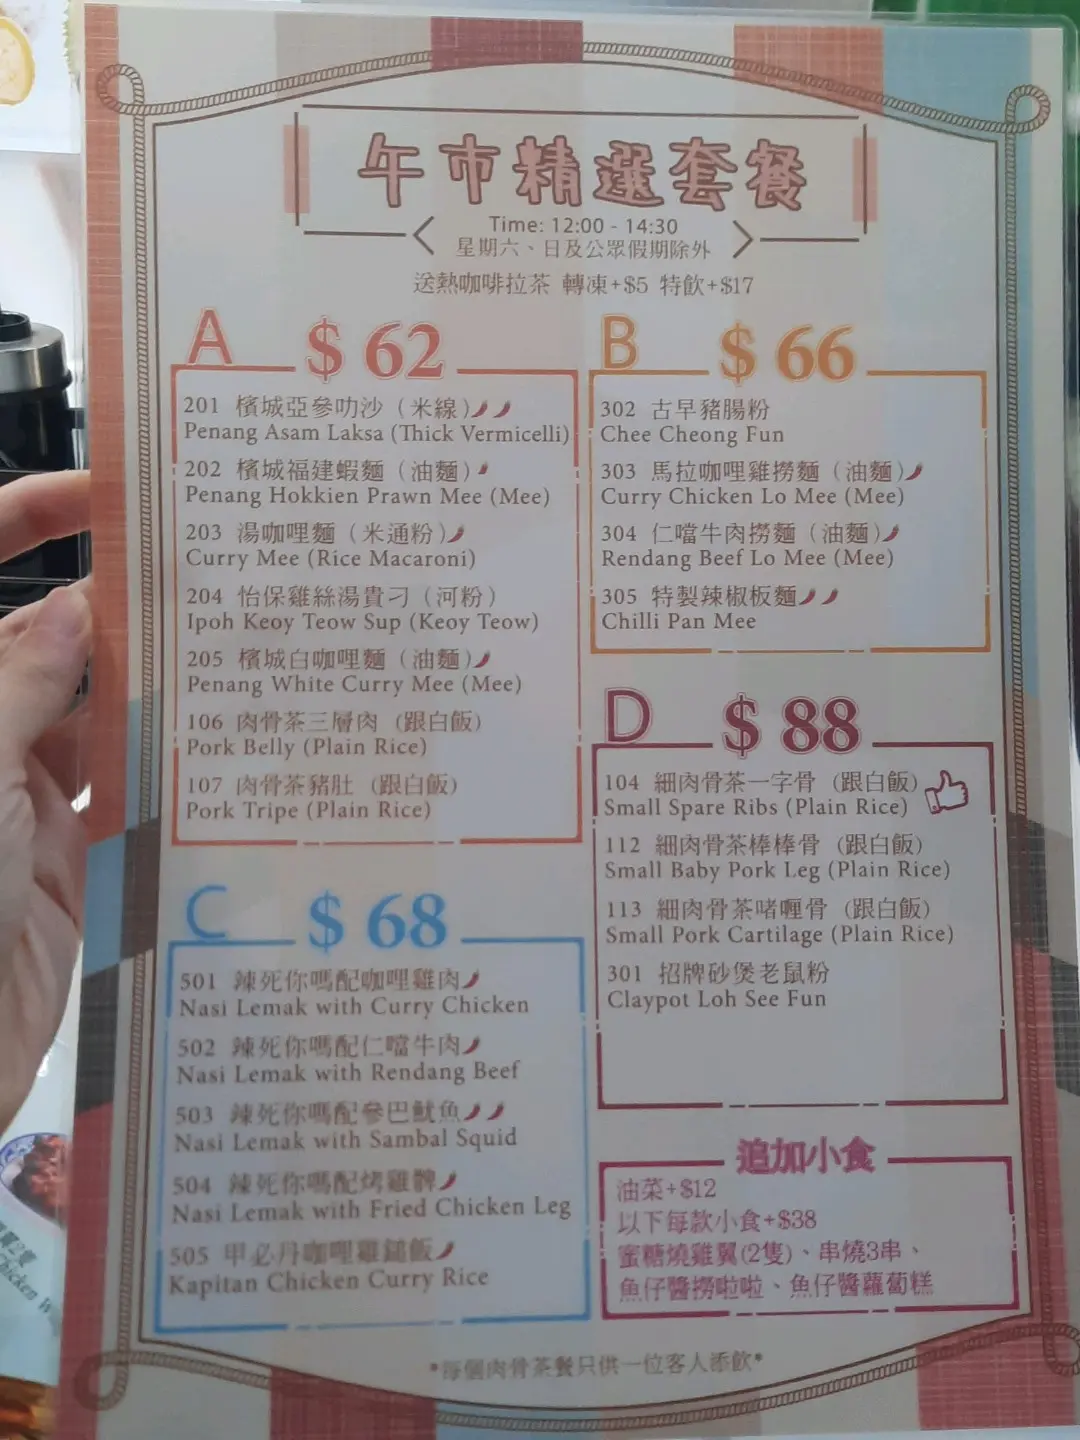 午市精選套餐
Time: 12:00 - 14:30
星期六、日及公眾假期除外
送熱咖啡拉茶 轉凍+$5 特飲+$17
A $62
201 檳城亞參叻沙（米線）
Penang Asam Laksa (Thick Vermicelli)
202 檳城福建蝦麵（油麵）
Penang Hokkien Prawn Mee (Mee)
203 湯咖哩麵（米通粉）
Curry Mee (Rice Macaroni)
204 怡保雞絲湯貴刁（河粉）
Ipoh Keoy Teow Sup (Keoy Teow)
205 檳城白咖哩麵（油麵）
Penang White Curry Mee (Mee)
106 肉骨茶三層肉（跟白飯）
Pork Belly (Plain Rice)
107 肉骨茶豬肚（跟白飯）
Pork Tripe (Plain Rice)
B $66
302 古早豬腸粉
Chee Cheong Fun
303 馬拉咖哩雞撈麵（油麵）
Curry Chicken Lo Mee (Mee)
304 仁噹牛肉撈麵（油麵）
Rendang Beef Lo Mee (Mee)
305 特製辣椒板麵
Chilli Pan Mee
C $68
501 辣死你嗎配咖哩雞肉
Nasi Lemak with Curry Chicken
502 辣死你嗎配仁噹牛肉
Nasi Lemak with Rendang Beef
503 辣死你嗎配參巴魷魚
Nasi Lemak with Sambal Squid
504 辣死你嗎配烤雞髀
Nasi Lemak with Fried Chicken Leg
505 甲必丹咖哩雞鎚飯
Kapitan Chicken Curry Rice
D $88
104 細肉骨茶一字骨（跟白飯）
Small Spare Ribs (Plain Rice)
112 細肉骨茶棒棒骨（跟白飯）
Small Baby Pork Leg (Plain Rice)
113 細肉骨茶啫喱骨（跟白飯）
Small Pork Cartilage (Plain Rice)
301 招牌砂煲老鼠粉
Claypot Loh See Fun
追加小食
油菜+$12
以下每款小食+$38
蜜糖燒雞翼(2隻)、串燒3串、
魚仔醬撈啦啦、魚仔醬蘿蔔糕
*每個肉骨茶餐只供一位客人添飲*
2隻
Chicken W